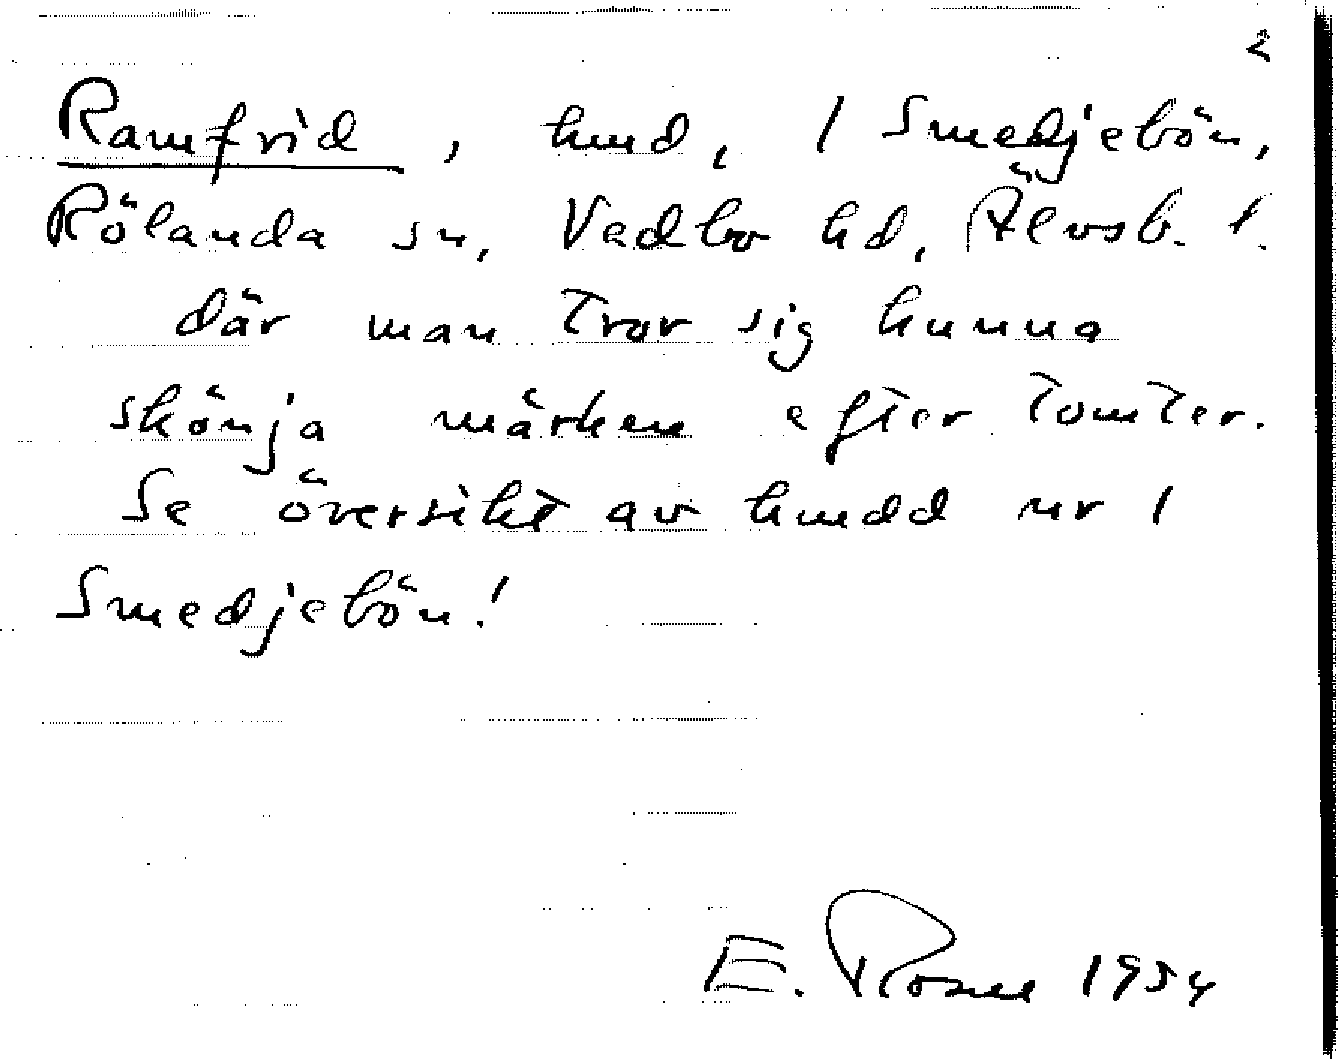 2
Ramfrid, hmd, 1 Smedjebön,
Rölanda sn, Vedbo hd, Älvsb. l.
där man tror sig kunna
skönja märken efter tomter.
Se översikt av hmdd nr 1
Smedjebön!
E. Rosell 1954